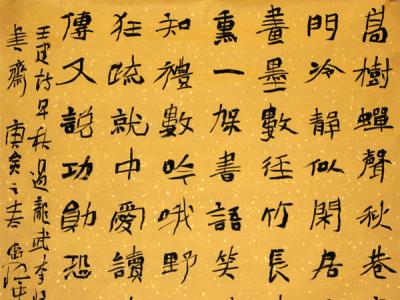 高樹蟬聲秋巷
門冷靜似閑居
畫墨數徑竹長
熏一架書語笑
知禮數吟哦野
狂疏就中愛讀
傳又説功勛恐
王建詩早秋過龍武李將
書齋 庚寅之春